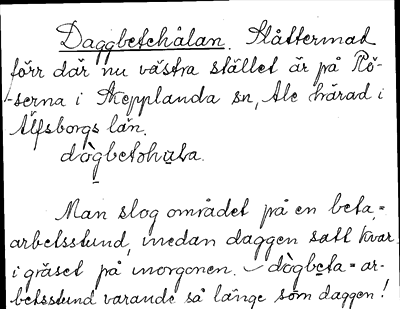 Daggbetehålan. Slåttermad
förr där nu västra stället är på Rö-
-serna i Skepplanda sn, Ale härad i
Älfsborgs län.
dògbetɘhu̲la.
Man slog området på en beta,=
arbetsstund, medan daggen satt kvar
i gräset på morgonen. – dògbeta = ar-
betsstund varande så länge som daggen!